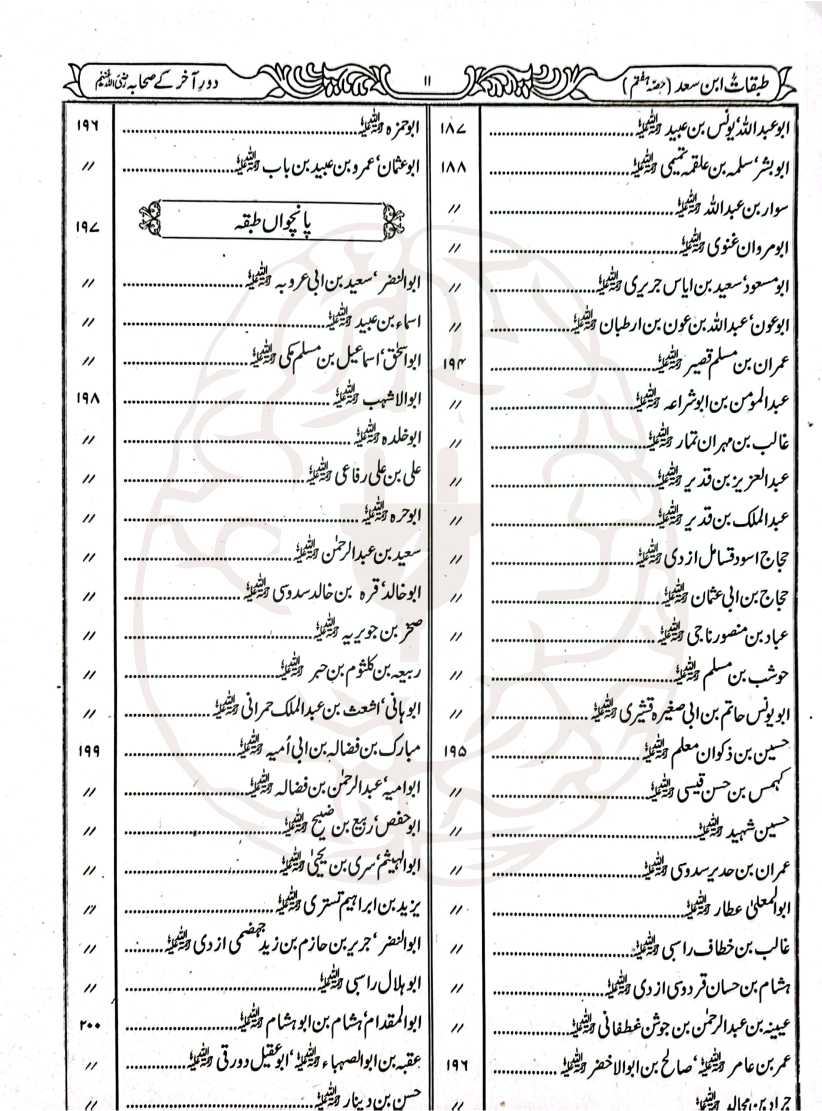 طبقات ابن سعد (حصہ ہفتم) ۱۱ دورِ آخر کے صحابہ رضی اللہ عنہم
ابوعبداللہ، یونس بن عبید رحمۃ اللہ علیہ ........ ۱۸۷
ابوبشر، سلمہ بن علقمہ تمیمی رحمۃ اللہ علیہ ........ ۱۸۸
سوار بن عبداللہ رحمۃ اللہ علیہ ........ //
ابو مروان غنوی رحمۃ اللہ علیہ ........ //
ابو مسعود، سعید بن ایاس جریری رحمۃ اللہ علیہ ........ //
ابوعون، عبداللہ بن عون بن ارطبان رحمۃ اللہ علیہ ........ //
عمران بن مسلم قصیر رحمۃ اللہ علیہ ........ ۱۹۴
عبدالمومن بن ابو شراعہ رحمۃ اللہ علیہ ........ //
غالب بن مہران تمار رحمۃ اللہ علیہ ........ //
عبدالعزیز بن قدیر رحمۃ اللہ علیہ ........ //
عبدالملک بن قدیر رحمۃ اللہ علیہ ........ //
حجاج اسود قسامل ازدی رحمۃ اللہ علیہ ........ //
حجاج بن ابی عثمان رحمۃ اللہ علیہ ........ //
عباد بن منصور ناجی رحمۃ اللہ علیہ ........ //
حوشب بن مسلم رحمۃ اللہ علیہ ........ //
ابویونس حاتم بن ابی صغیرہ قشیری رحمۃ اللہ علیہ ........ //
حسین بن ذکوان معلم رحمۃ اللہ علیہ ........ ۱۹۵
کہمس بن حسن قیسی رحمۃ اللہ علیہ ........ //
حسین شہید رحمۃ اللہ علیہ ........ //
عمران بن حدیر سدوسی رحمۃ اللہ علیہ ........ //
ابوالمعلیٰ عطار رحمۃ اللہ علیہ ........ //
غالب بن خطاف راسبی رحمۃ اللہ علیہ ........ //
ہشام بن حسان قردوسی ازدی رحمۃ اللہ علیہ ........ //
عیینہ بن عبدالرحمٰن بن جوشن غطفانی رحمۃ اللہ علیہ ........ //
عمر بن عامر رحمۃ اللہ علیہ، صالح بن ابوالاخضر رحمۃ اللہ علیہ ........ ۱۹۶
ابوحمزہ رحمۃ اللہ علیہ ........ ۱۹۶
ابوعثمان، عمرو بن عبید بن باب رحمۃ اللہ علیہ ........ //
پانچواں طبقہ ۱۹۷
ابوالنضر، سعید بن ابی عروبہ رحمۃ اللہ علیہ ........ //
اسماء بن عبید رحمۃ اللہ علیہ ........ //
ابواسحٰق، اسماعیل بن مسلم مکی رحمۃ اللہ علیہ ........ //
ابوالاشہب رحمۃ اللہ علیہ ........ ۱۹۸
ابوخلدہ رحمۃ اللہ علیہ ........ //
علی بن علی رفاعی رحمۃ اللہ علیہ ........ //
ابوحرہ رحمۃ اللہ علیہ ........ //
سعید بن عبدالرحمٰن رحمۃ اللہ علیہ ........ //
ابوخالد، قرہ بن خالد سدوسی رحمۃ اللہ علیہ ........ //
صخر بن جویریہ رحمۃ اللہ علیہ ........ //
ربیعہ بن کلثوم بن جبر رحمۃ اللہ علیہ ........ //
ابوہانی، اشعث بن عبدالملک حمرانی رحمۃ اللہ علیہ ........ //
مبارک بن فضالہ بن ابی اُمیہ رحمۃ اللہ علیہ ........ ۱۹۹
ابوامیہ، عبدالرحمٰن بن فضالہ رحمۃ اللہ علیہ ........ //
ابوحفص، ربیع بن صبیح رحمۃ اللہ علیہ ........ //
ابوالہیثم، سری بن یحییٰ رحمۃ اللہ علیہ ........ //
یزید بن ابراہیم تستری رحمۃ اللہ علیہ ........ //
ابوالنضر، جریر بن حازم بن زید جہضمی ازدی رحمۃ اللہ علیہ ........ //
ابوہلال راسبی رحمۃ اللہ علیہ ........ //
ابوالمقدام، ہشام بن ابو ہشام رحمۃ اللہ علیہ ........ ۲۰۰
عقبہ بن ابوالصہباء رحمۃ اللہ علیہ، ابوعقیل دورقی رحمۃ اللہ علیہ ........ //
حسن بن دینار رحمۃ اللہ علیہ ........ //